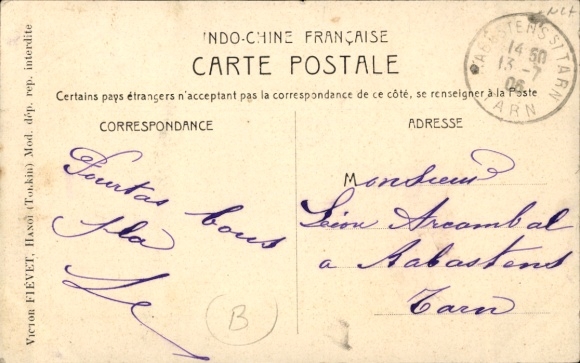 INDO-CHINE FRANÇAISE
CARTE POSTALE
Certains pays étrangers n'acceptant pas la correspondance de ce côté, se renseigner à la Poste
CORRESPONDANCE
Pourtas bous
pla
ADRESSE
Monsieur
Léon Arcambal
a Rabastens
Tarn
RABASTENS S/TARN
14 50
13 - 7
06
TARN
B
VICTOR FIÉVET, HANOÏ (TONKIN) Mod. dép. rep. interdite